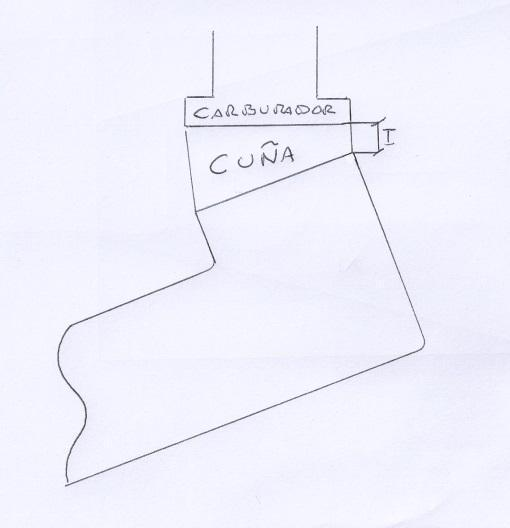 CARBURADOR
I
CUÑA